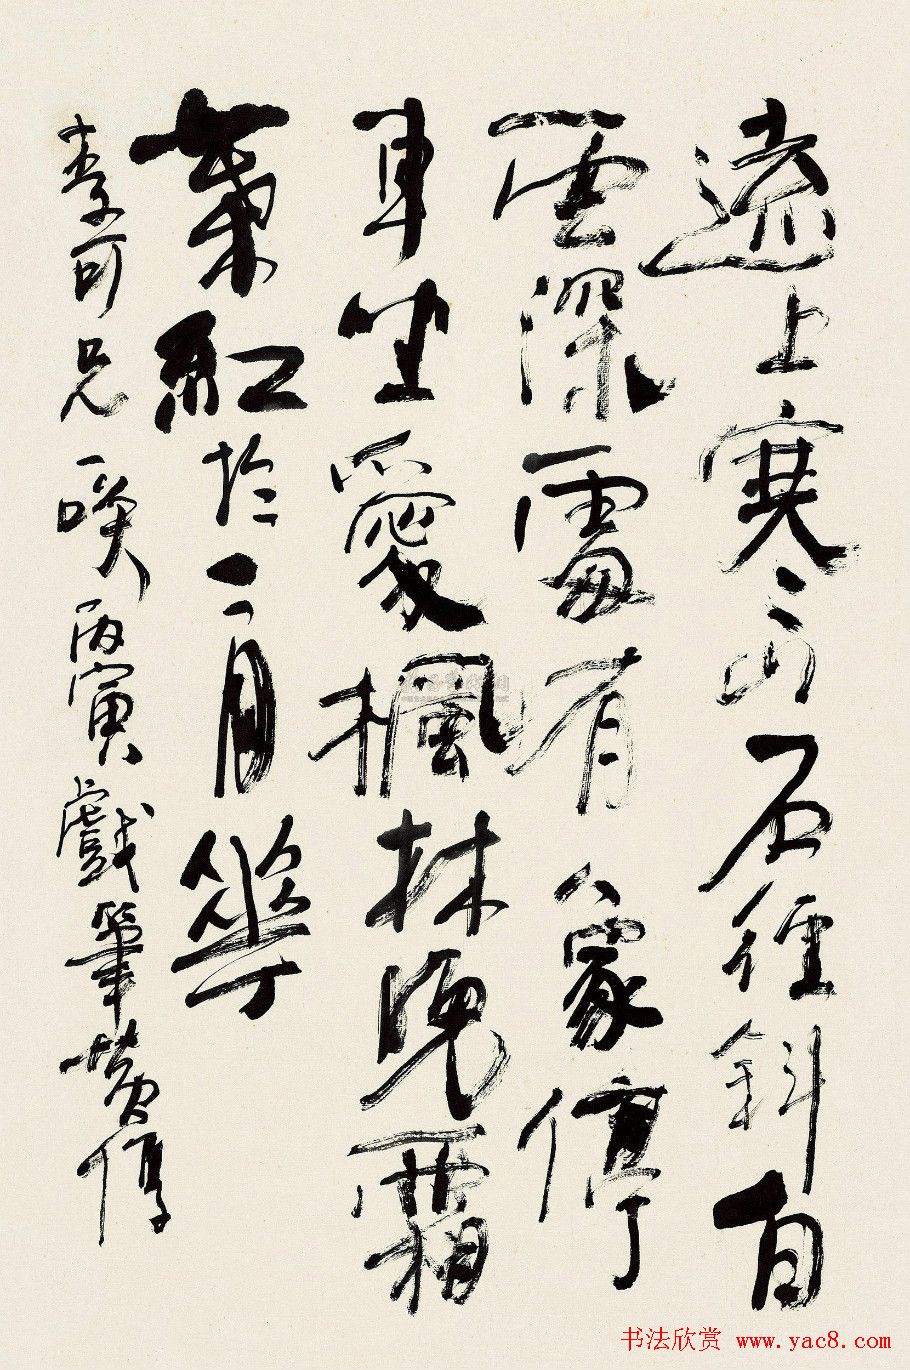 遠上寒山石徑斜白
雲深處有人家停
車坐愛楓林晚霜
葉紅於二月華
孝可兄一咲丙寅戲筆黄惇
书法欣赏 www.yac8.com